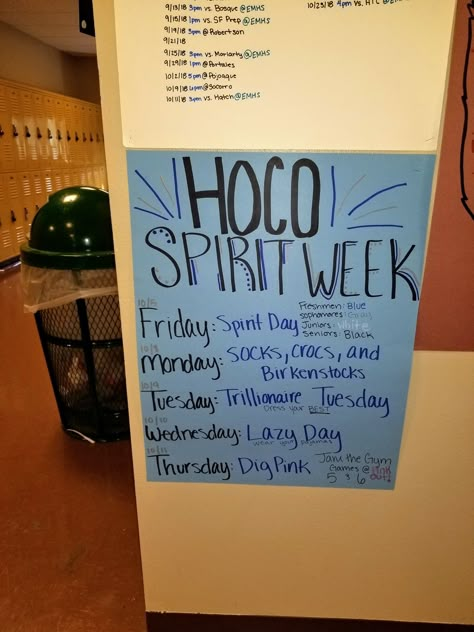 9/13/18 3pm vs. Bosque @EMHS
9/15/18 1pm vs. SF Prep @EMHS
9/19/18 3pm @ Robertson
9/21/18
9/25/18 3pm vs. Moriarty @EMHS
9/29/18 1pm @ Portales
10/2/18 5pm @ Pojoaque
10/9/18 @ Socorro
10/11/18 vs. Hatch @EMHS
10/23/18 4pm vs. HTC
HOCO
SPIRIT WEEK
10/5
Friday: Spirit Day
Freshmen: Blue
sophomores: Gray
Juniors: White
Seniors: Black
Monday: SOCKS, CROCS, AND
Birkenstocks
10/9
Tuesday: Trillionaire Tuesday
Dress your BEST
10/10
Wednesday: Lazy Day
wear your pajamas
10/11
Thursday: Dig Pink
Jam the Gym
Games @
5 & 6
PINK
out!